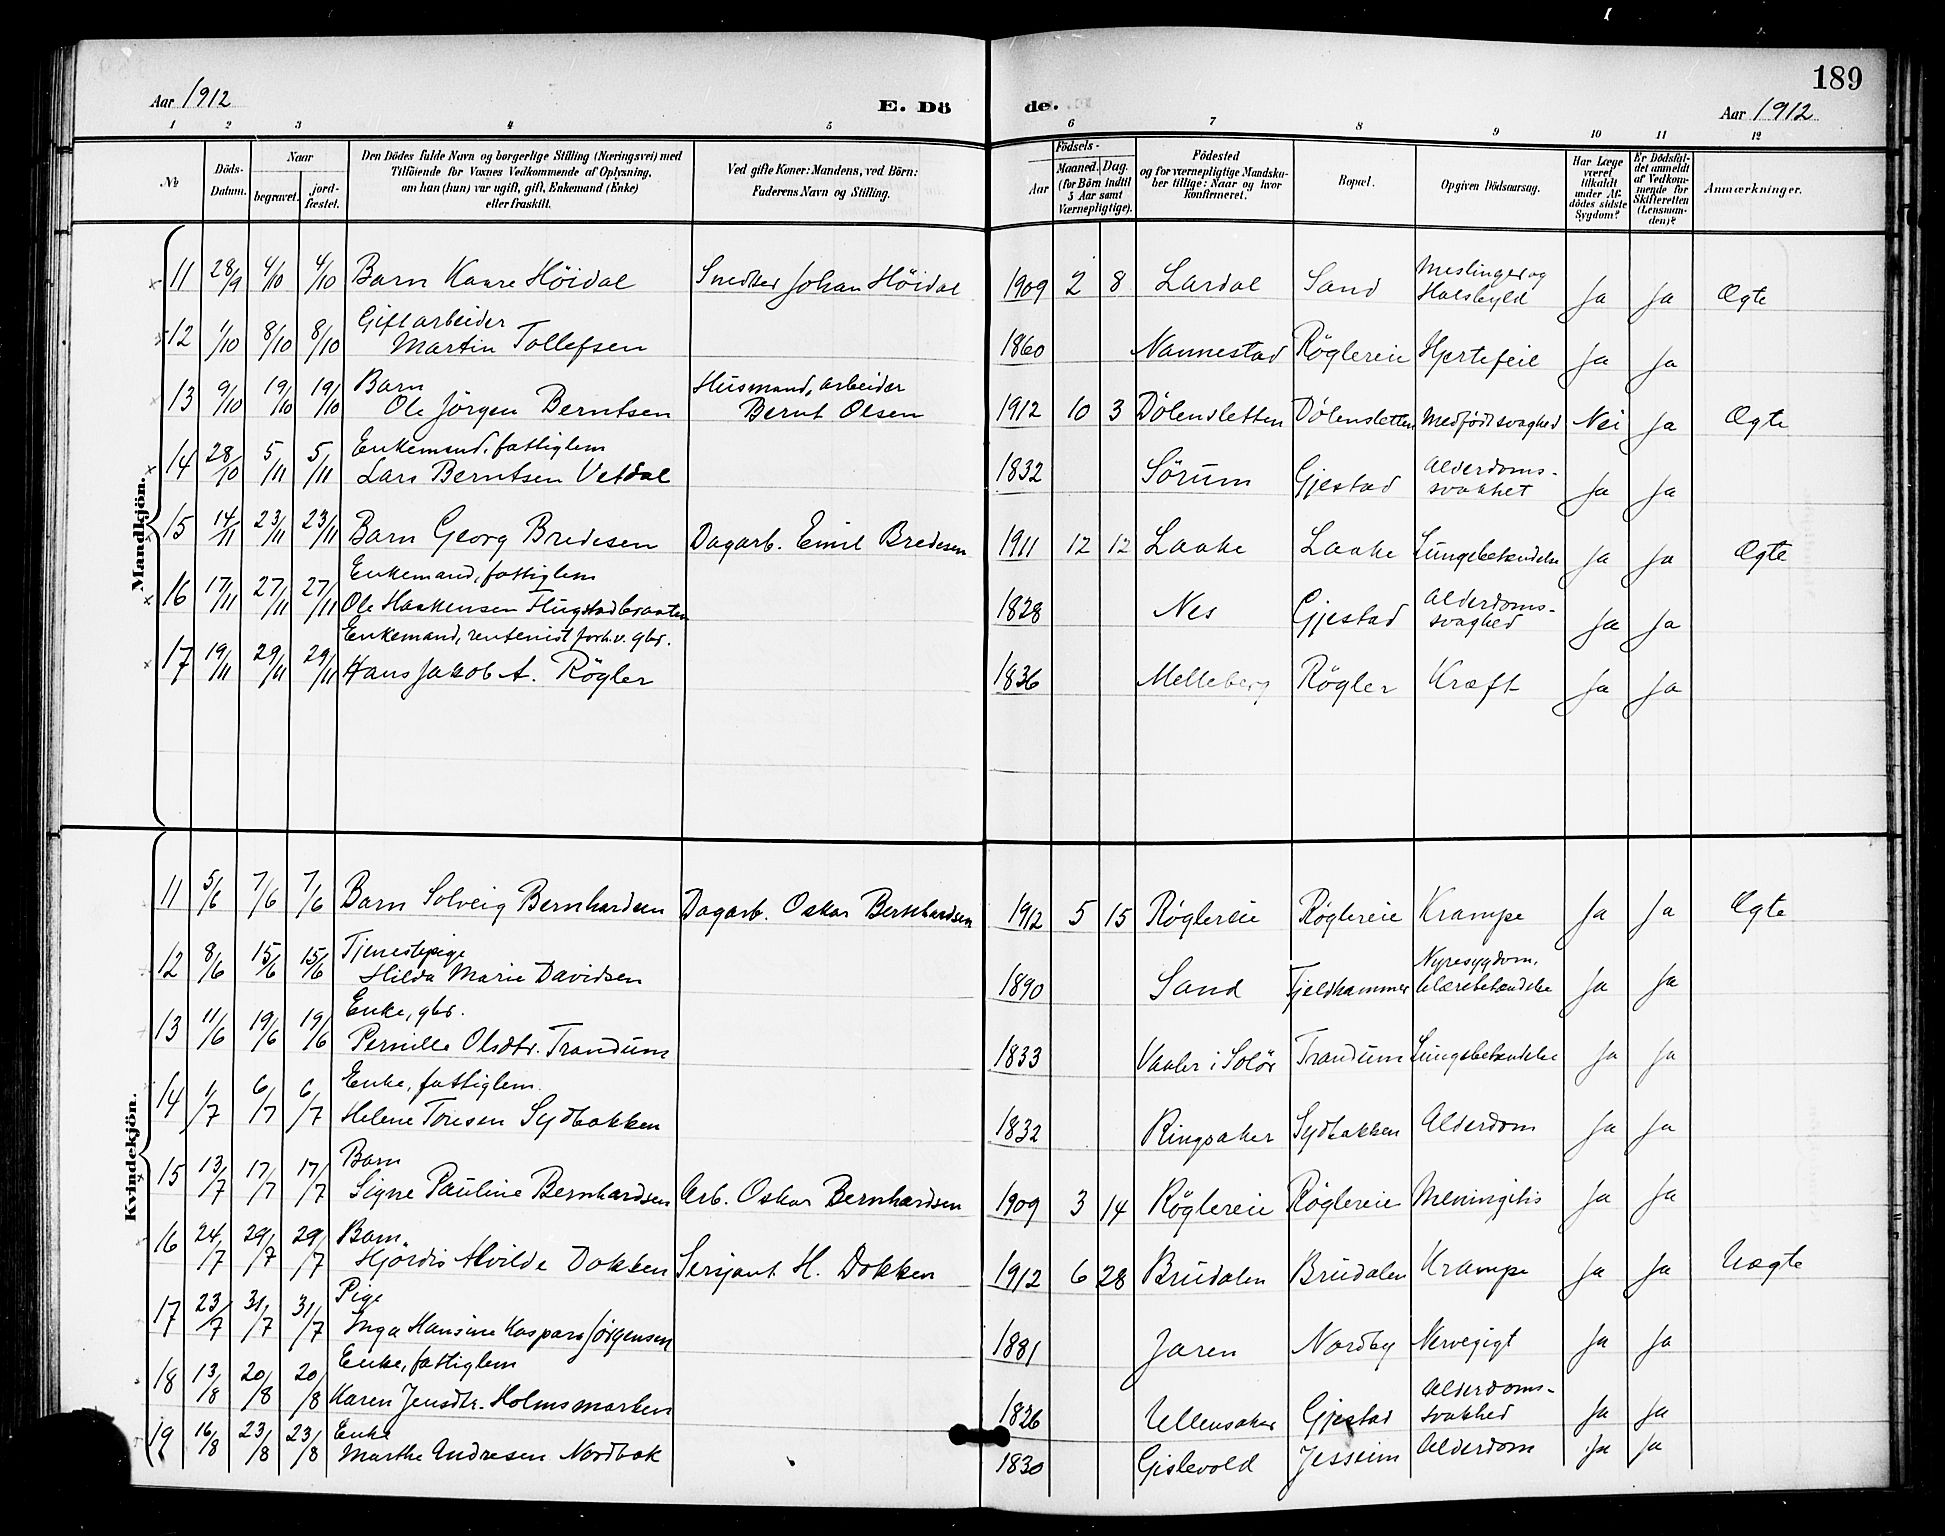 189
Aar 1912 E. Döde. Aar 1912
1 2 3 4 5 6 7 8 9 10 11 12
№ Döds-Datum. Naar begravet. jord-fæstet. Den Dödes fulde Navn og borgerlige Stilling (Næringsvei) med Tilföiende for Voxnes Vedkommende af Oplysning, om han (hun) var ugift, gift, Enkemand (Enke) eller fraskilt. Ved gifte Koner: Mandens, ved Börn: Faderens Navn og Stilling. Födsels- Aar Maaned. Dag. (for Börn indtil 5 Aar samt Værnepligtige). Födested og for værnepligtige Mandskaber tillige: Naar og hvor konfirmeret. Bopæl. Opgiven Dödsaarsag. Har Læge været tilkaldt under Afdödes sidste Sygdom? Er Dödsfaldet anmeldt af Vedkommende for Skifteretten (Lensmanden)? Anmærkninger.
Mandkjön.
11 28/9 4/10 4/10 Barn Kaare Höidal Snedker Johan Höidal 1909 2 8 Lardal Sand Meslinger og Halsbyld Ja Ja Ægte
12 1/10 8/10 8/10 Gift arbeider Martin Tollefsen 1860 Nannestad Röglereie Hjertefeil Ja Ja
13 9/10 19/10 19/10 Barn Ole Jörgen Berntsen Husmand, arbeider Bernt Olsen 1912 10 3 Dölensletten Dölensletten Medfödt svaghed Nei Ja Ægte
14 28/10 5/11 5/11 Enkemand, fattiglem Lars Berntsen Vetdal 1832 Sörum Gjestad Alderdoms-svakhet Ja Ja
15 14/11 23/11 23/11 Barn Georg Bredesen Dagarb. Emil Bredesen 1911 12 12 Laake Laake Lungebetændelse Ja Ja Ægte
16 17/11 27/11 27/11 Enkemand, fattiglem Ole Haakensen Hugstadbraaten 1828 Nes Gjestad Alderdoms-svaghed Ja Ja
17 19/11 29/11 29/11 Enkemand, rentenist forh.v. gbr. Hans Jakob A. Rögler 1836 Melleberg Rögler Kræft Ja Ja
Kvindekjön.
11 5/6 7/6 7/6 Barn Solveig Bernhardsen Dagarb. Oskar Bernhardsen 1912 5 15 Röglereie Röglereie Krampe Ja Ja Ægte
12 8/6 15/6 15/6 Tjenestepige Hilda Marie Davidsen 1890 Sand Fjeldhammer Nyresygdom, blærebetændelse Ja Ja
13 11/6 19/6 19/6 Enke, gbr. Pernille Olsdtr. Trandum 1833 Vaaler i Solör Trandum Lungebetændelse Ja Ja
14 1/7 6/7 6/7 Enke, fattiglem. Helene Toresen Sydbakken 1832 Ringsaker Sydbakken Alderdom Ja Ja
15 13/7 17/7 17/7 Barn Signe Pauline Bernhardsen Arb. Oskar Bernhardsen 1909 3 14 Röglereie Röglereie Meningitis Ja Ja
16 24/7 29/7 29/7 Barn Hjördis Alvilde Dokken Serjant H. Dokken 1912 6 28 Brudalen Brudalen Krampe Ja Ja Uægte
17 23/7 31/7 31/7 Pige Inga Hansine Kaspara Jörgensen 1881 Jaren Nordby Nervegigt Ja Ja
18 13/8 20/8 20/8 Enke, fattiglem Karen Jensdtr. Holmsmarken 1826 Ullensaker Gjestad Alderdoms-svakhed Ja Ja
19 16/8 23/8 23/8 Enke Marthe Andresen Nordbak 1830 Gislevold Jessheim Alderdom Ja Ja